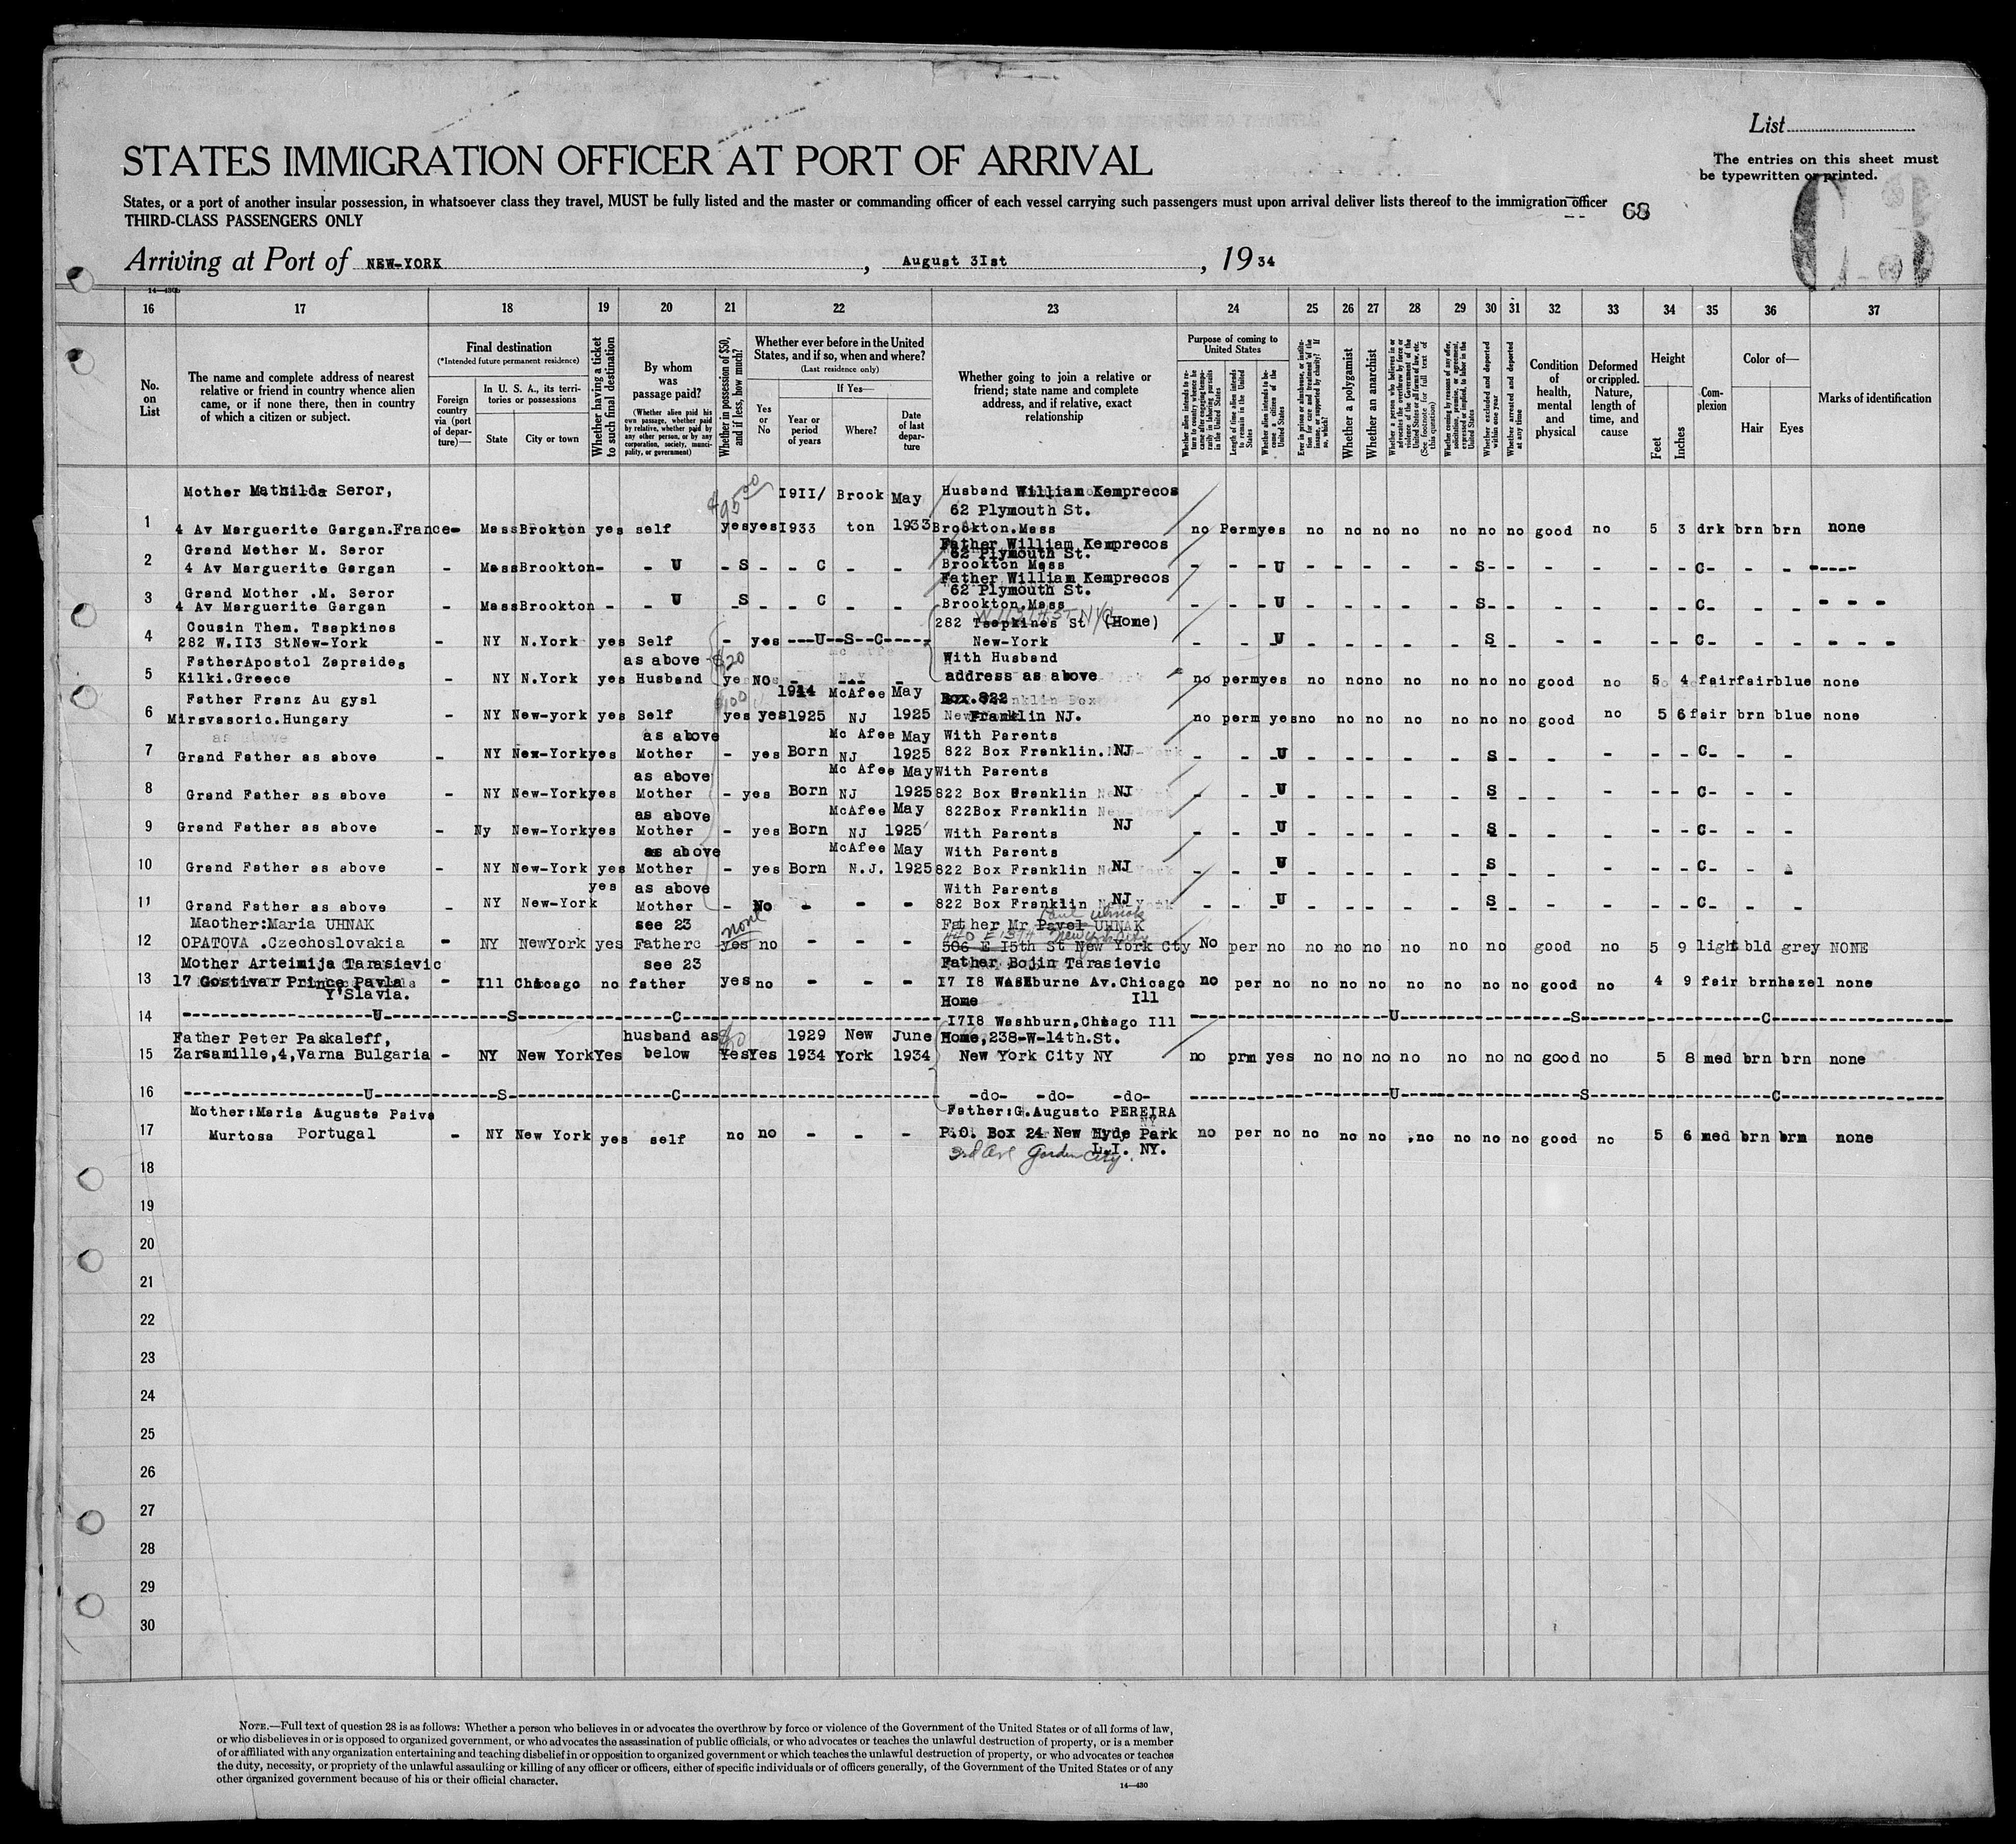 List
STATES IMMIGRATION OFFICER AT PORT OF ARRIVAL
The entries on this sheet must
be typewritten or printed.
States, or a port of another insular possession, in whatsoever class they travel, MUST be fully listed and the master or commanding officer of each vessel carrying such passengers must upon arrival deliver lists thereof to the immigration officer
THIRD-CLASS PASSENGERS ONLY
68
Arriving at Port of NEW-YORK, August 3Ist, 1934
16 17 18 19 20 21 22 23 24 25 26 27 28 29 30 31 32 33 34 35 36 37
No. on List
The name and complete address of nearest relative or friend in country whence alien came, or if none there, then in country of which a citizen or subject.
Final destination
(*Intended future permanent residence)
Foreign country via (port of departure)—
In U. S. A., its territories or possessions
State
City or town
Whether having a ticket to such final destination
By whom was passage paid?
(Whether alien paid his own passage, whether paid by relative, whether paid by any other person, or by any corporation, society, municipality, or government)
Whether in possession of $50, and if less, how much?
Whether ever before in the United States, and if so, when and where?
(Last residence only)
Yes or No
If Yes—
Year or period of years
Where?
Date of last departure
Whether going to join a relative or friend; state name and complete address, and if relative, exact relationship
Purpose of coming to United States
Whether alien intends to return to country whence he came after engaging temporarily in laboring pursuits in the United States
Length of time alien intends to remain in the United States
Whether alien intends to become a citizen of the United States
Ever in prison or almshouse, or institution for care and treatment of the insane, or supported by charity? If so, which?
Whether a polygamist
Whether an anarchist
Whether a person who believes in or advocates the overthrow by force or violence of the Government of the United States or all forms of law, etc. (See footnote for full text of this question)
Whether coming by reasons of any offer, solicitation, promise, or agreement, expressed or implied, to labor in the United States
Whether excluded and deported within one year
Whether arrested and deported at any time
Condition of health, mental and physical
Deformed or crippled. Nature, length of time, and cause
Height
Feet
Inches
Complexion
Color of—
Hair
Eyes
Marks of identification
Mother Mathilda Seror, $95 1911/ Brook May Husband William Kemprecos
62 Plymouth St.
1 4 Av Marguerite Gargan.France- Mass Brokton yes self yes yes I933 ton 1933 Brookton.Mass no Perm yes no no no no no no no good no 5 3 drk brn brn none
Grand Mother M. Seror Father William Kemprecos
62 Plymouth St.
2 4 Av Marguerite Gargan - Mass Brookton - - U - S - - C - - Brookton Mass - - - U - - - - - S - - - - - - C - - - ----
Grand Mother .M. Seror Father William Kemprecos
62 Plymouth St.
3 4 Av Marguerite Gargan - Mass Brookton - - U - S C - - Brookton.Mass - - - U - - - - - S - - - - - - C - - - - - -
Cousin Them. Tsepkines 282 Tsepkines St (Home)
4 282 W.II3 StNew-York - NY N.York yes Self - yes ---U--S--C----- New-York - - U - - - - - S - - - - - C - - - - - -
FatherApostol Zepraides as above $20 With Husband
5 Kilki.Greece NY N.York yes Husband ye No - - - address as above no perm yes no no no no no no no good no 5 4 fair fair blue none
Father Franz Au gysl $100 1914 McAfee May Box.822
6 Mirsvasoric.Hungary - NY New-york yes Self yes yes 1925 NJ 1925 Franklin NJ. no perm yes no no no no no no no good no 5 6 fair brn blue none
as above Mc Afee May With Parents
7 Grand Father as above - NY New-York yes Mother - yes Born NJ 1925 822 Box Franklin. NJ - - U - - - - - S - - - - - C - - -
as above Mc Afee May With Parents
8 Grand Father as above - NY New-York yes Mother - yes Born NJ 1925 822 Box Franklin NJ - - U - - - - - S - - - - - C - - -
as above McAfee May 822Box Franklin
9 Grand Father as above - Ny New-York yes Mother - yes Born NJ 1925 With Parents NJ - - U - - - - - S - - - - - C - - -
as above McAfee May With Parents
10 Grand Father as above - NY New-York yes Mother - yes Born N.J. 1925 822 Box Franklin NJ - - U - - - - - S - - - - - C - -
yes as above With Parents
11 Grand Father as above - NY New-York Mother - No - - - 822 Box Franklin NJ - - U - - - - - S - - - - - C - - -
Maother:Maria UHNAK see 23 none Father Mr Pavel UHNAK Paul Uhnak
12 OPATOVA .Czechoslovakia - NY NewYork yes Father yes no - - - 506 E I5th St New York Cty No per no no no no no no no good no 5 9 light bld grey NONE
Mother Arteimija Tarasievic see 23 Father Bojin Tarasievic
13 17 Gostivar Prince Pavla - Ill Chicago no father yes no - - - I7 I8 Washburne Av.Chicago no per no no no no no no no no good no 4 9 fair brn hazel none
Y'Slavia. Home Ill
14 ---U---S---C--- I7I8 Washburn,Chiago Ill ---U---S---C---
Father Peter Paskaleff, husband as 1929 New June Home,238-W-14th.St.
15 Zarsamille,4,Varna Bulgaria - NY New York Yes below Yes Yes 1934 York 1934 New York City NY no prm yes no no no no no no no good no 5 8 med brn brn none
16 ---U---S---C--- -do- -do- -do- ---U---S---C---
Mother:Maria Augusta Paiva Father:G.Augusto PEREIRA
17 Murtosa Portugal - NY New York yes self no no - - - P.O. Box 24 New Hyde Park no per no no no no no no no no good no 5 6 med brn brn none
L.I. NY.
3rd Ave Garden City.
18
19
20
21
22
23
24
25
26
27
28
29
30
NOTE.—Full text of question 28 is as follows: Whether a person who believes in or advocates the overthrow by force or violence of the Government of the United States or of all forms of law,
or who disbelieves in or is opposed to organized government, or who advocates the assassination of public officials, or who advocates or teaches the unlawful destruction of property, or is a member
of or affiliated with any organization entertaining and teaching disbelief in or opposition to organized government or which teaches the unlawful destruction of property, or who advocates or teaches
the duty, necessity, or propriety of the unlawful assaulting or killing of any officer or officers, either of specific individuals or of officers generally, of the Government of the United States or of any
other organized government because of his or their official character.
14—430